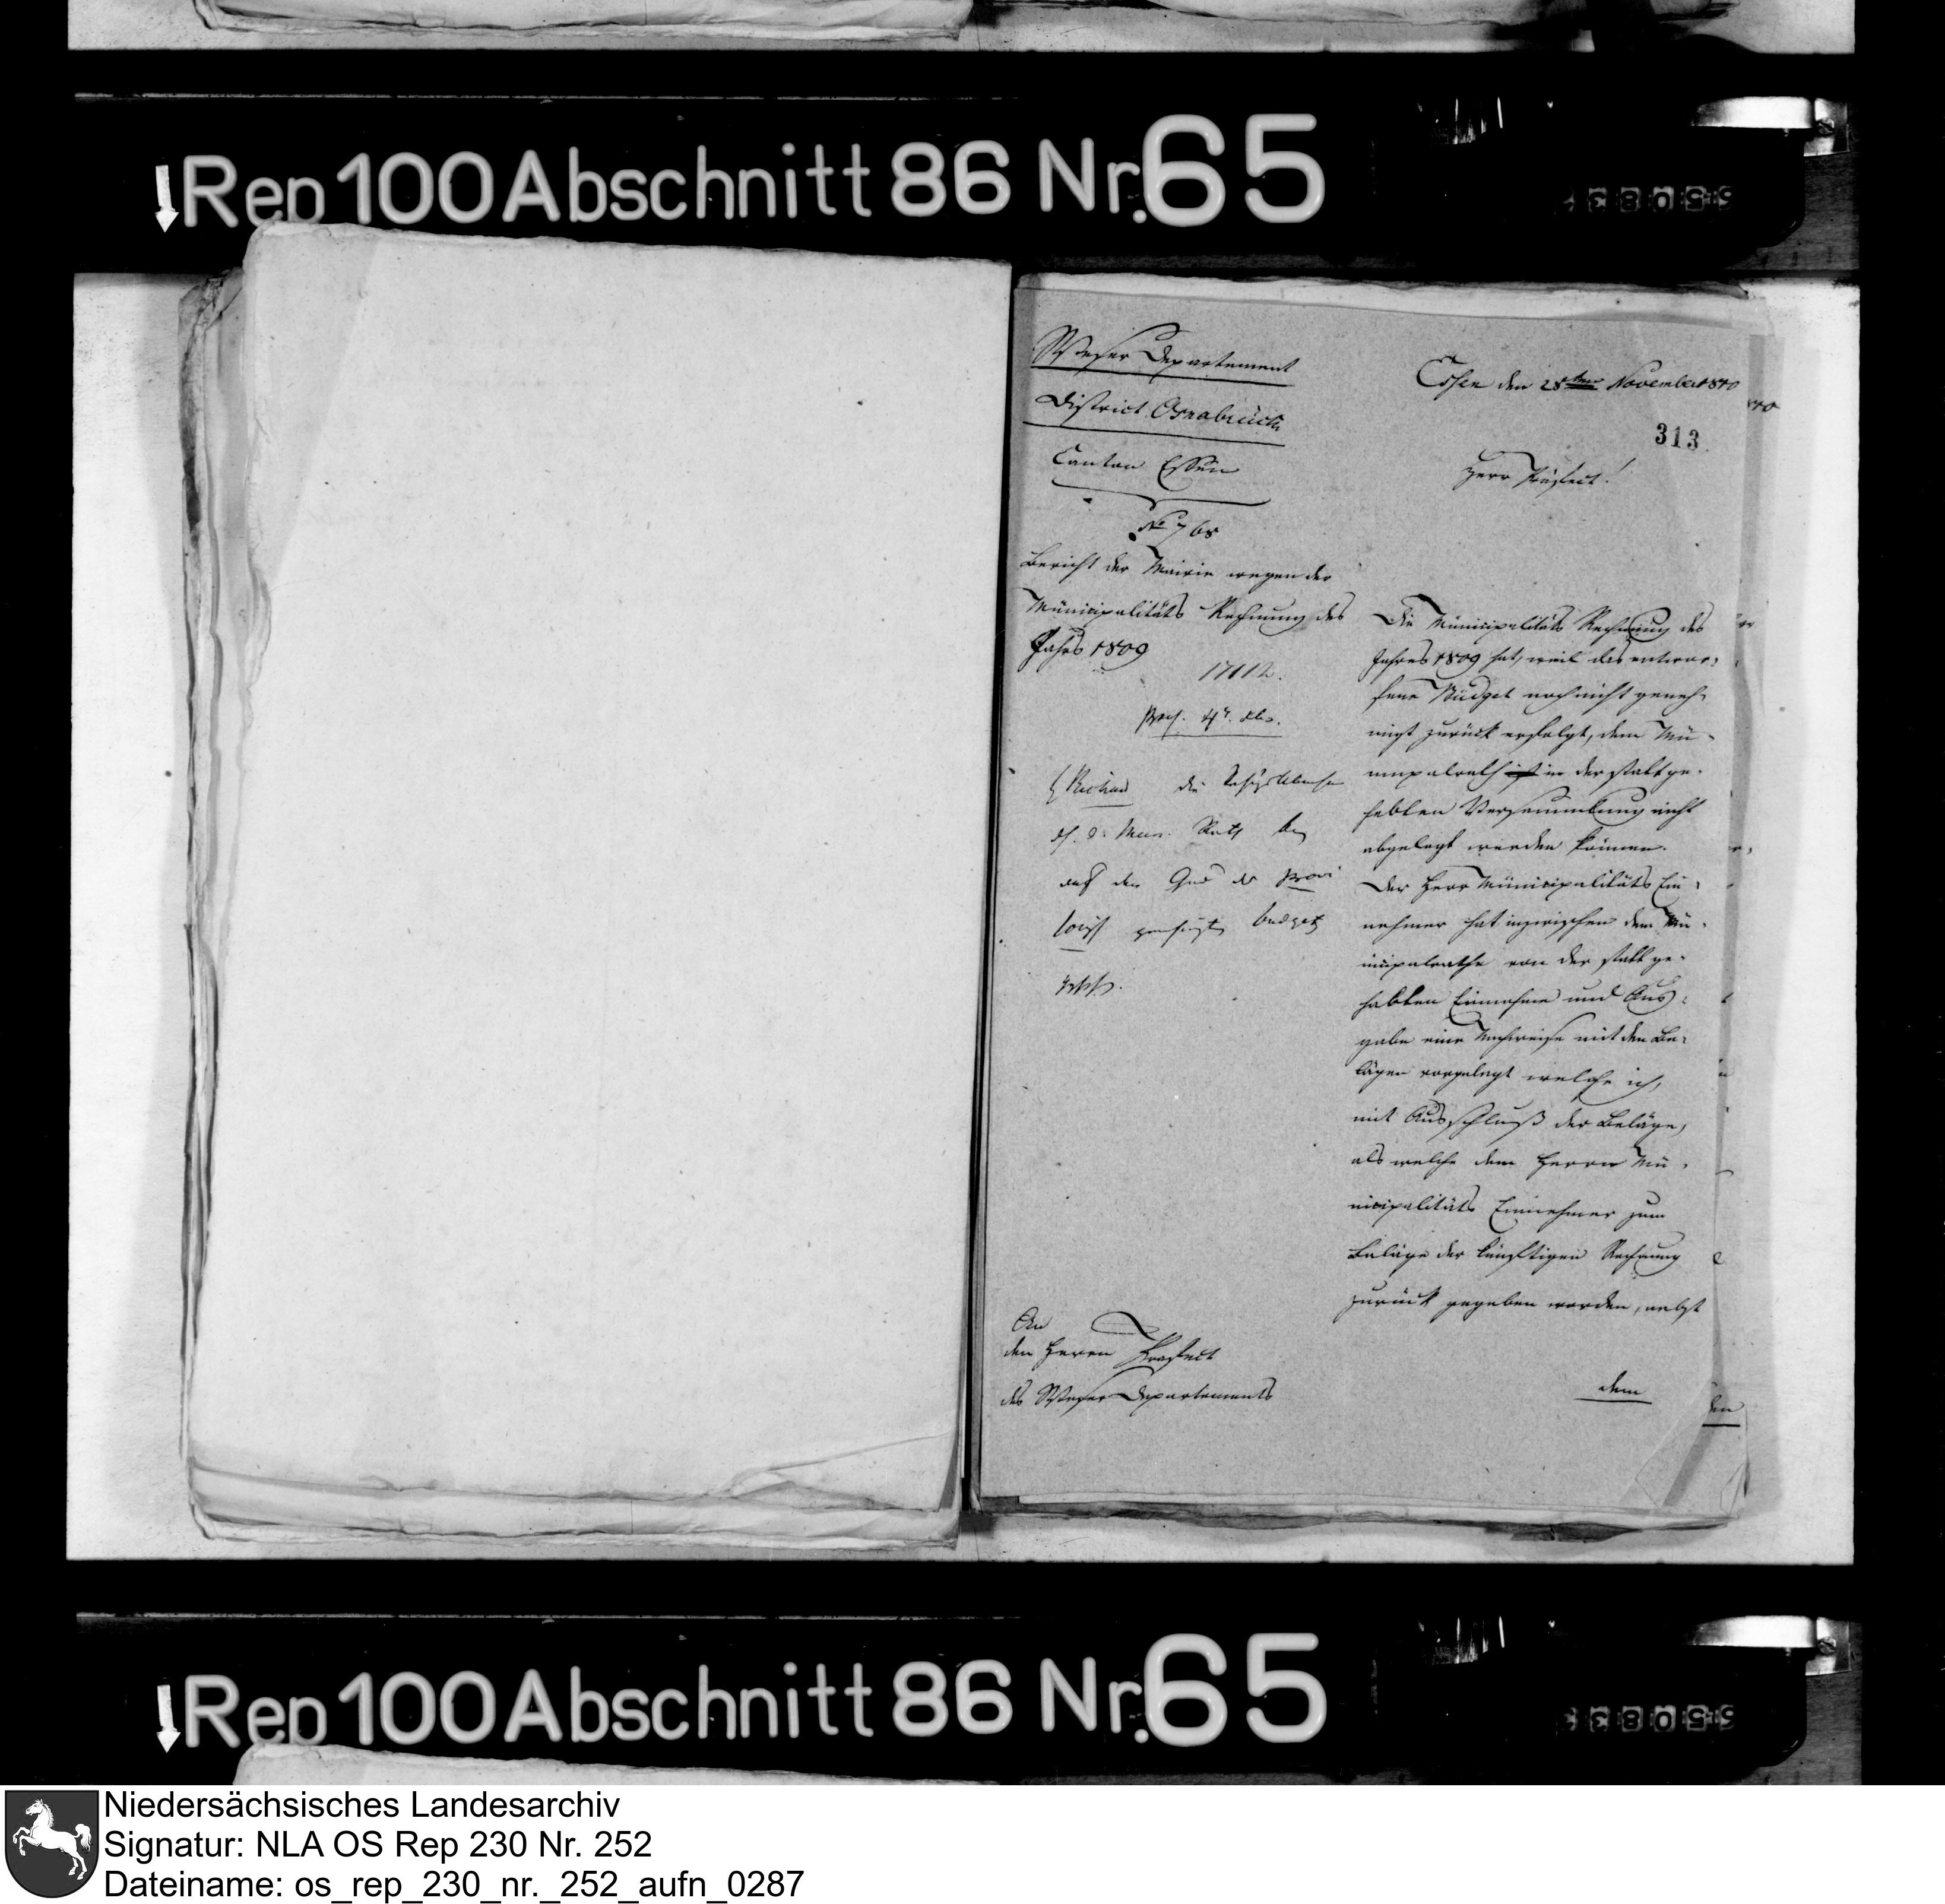 Rep 100 Abschnitt 86 Nr. 65
Weser Departement
District Osnabrück
Canton Essen
No 768
Bericht der Mairie wegen der
Municipalitäts Rechnung des
Jahrs 1809
17112.
Essen den 28ten November 1810
313
Herr Präfect!
Die Municipalitäts Rechnung des
Jahres 1809 hat, weil das entwor-
fene Budget noch nicht geneh-
migt zurück erfolgt, dem Mu-
nicipalrath in der statt ge-
habten Versammlung nicht
abgelegt werden können.
Der Herr Municipalitäts Ein-
nehmer hat inzwischen dem Mu-
nicipalrathe von der statt ge-
habten Einnahme und Aus-
gabe eine Nachweise mit den Be-
lägen vorgelegt welche ich,
mit Ausschluß der Beläge,
als welche dem Herrn Mu-
nicipalitäts Einnehmer zum
Beläge der künftigen Rechnung
zurück gegeben worden, nebst
dem
An
den Herrn Praefect
des Weser Departements
Rep 100 Abschnitt 86 Nr. 65
Niedersächsisches Landesarchiv
Signatur: NLA OS Rep 230 Nr. 252
Dateiname: os_rep_230_nr._252_aufn_0287